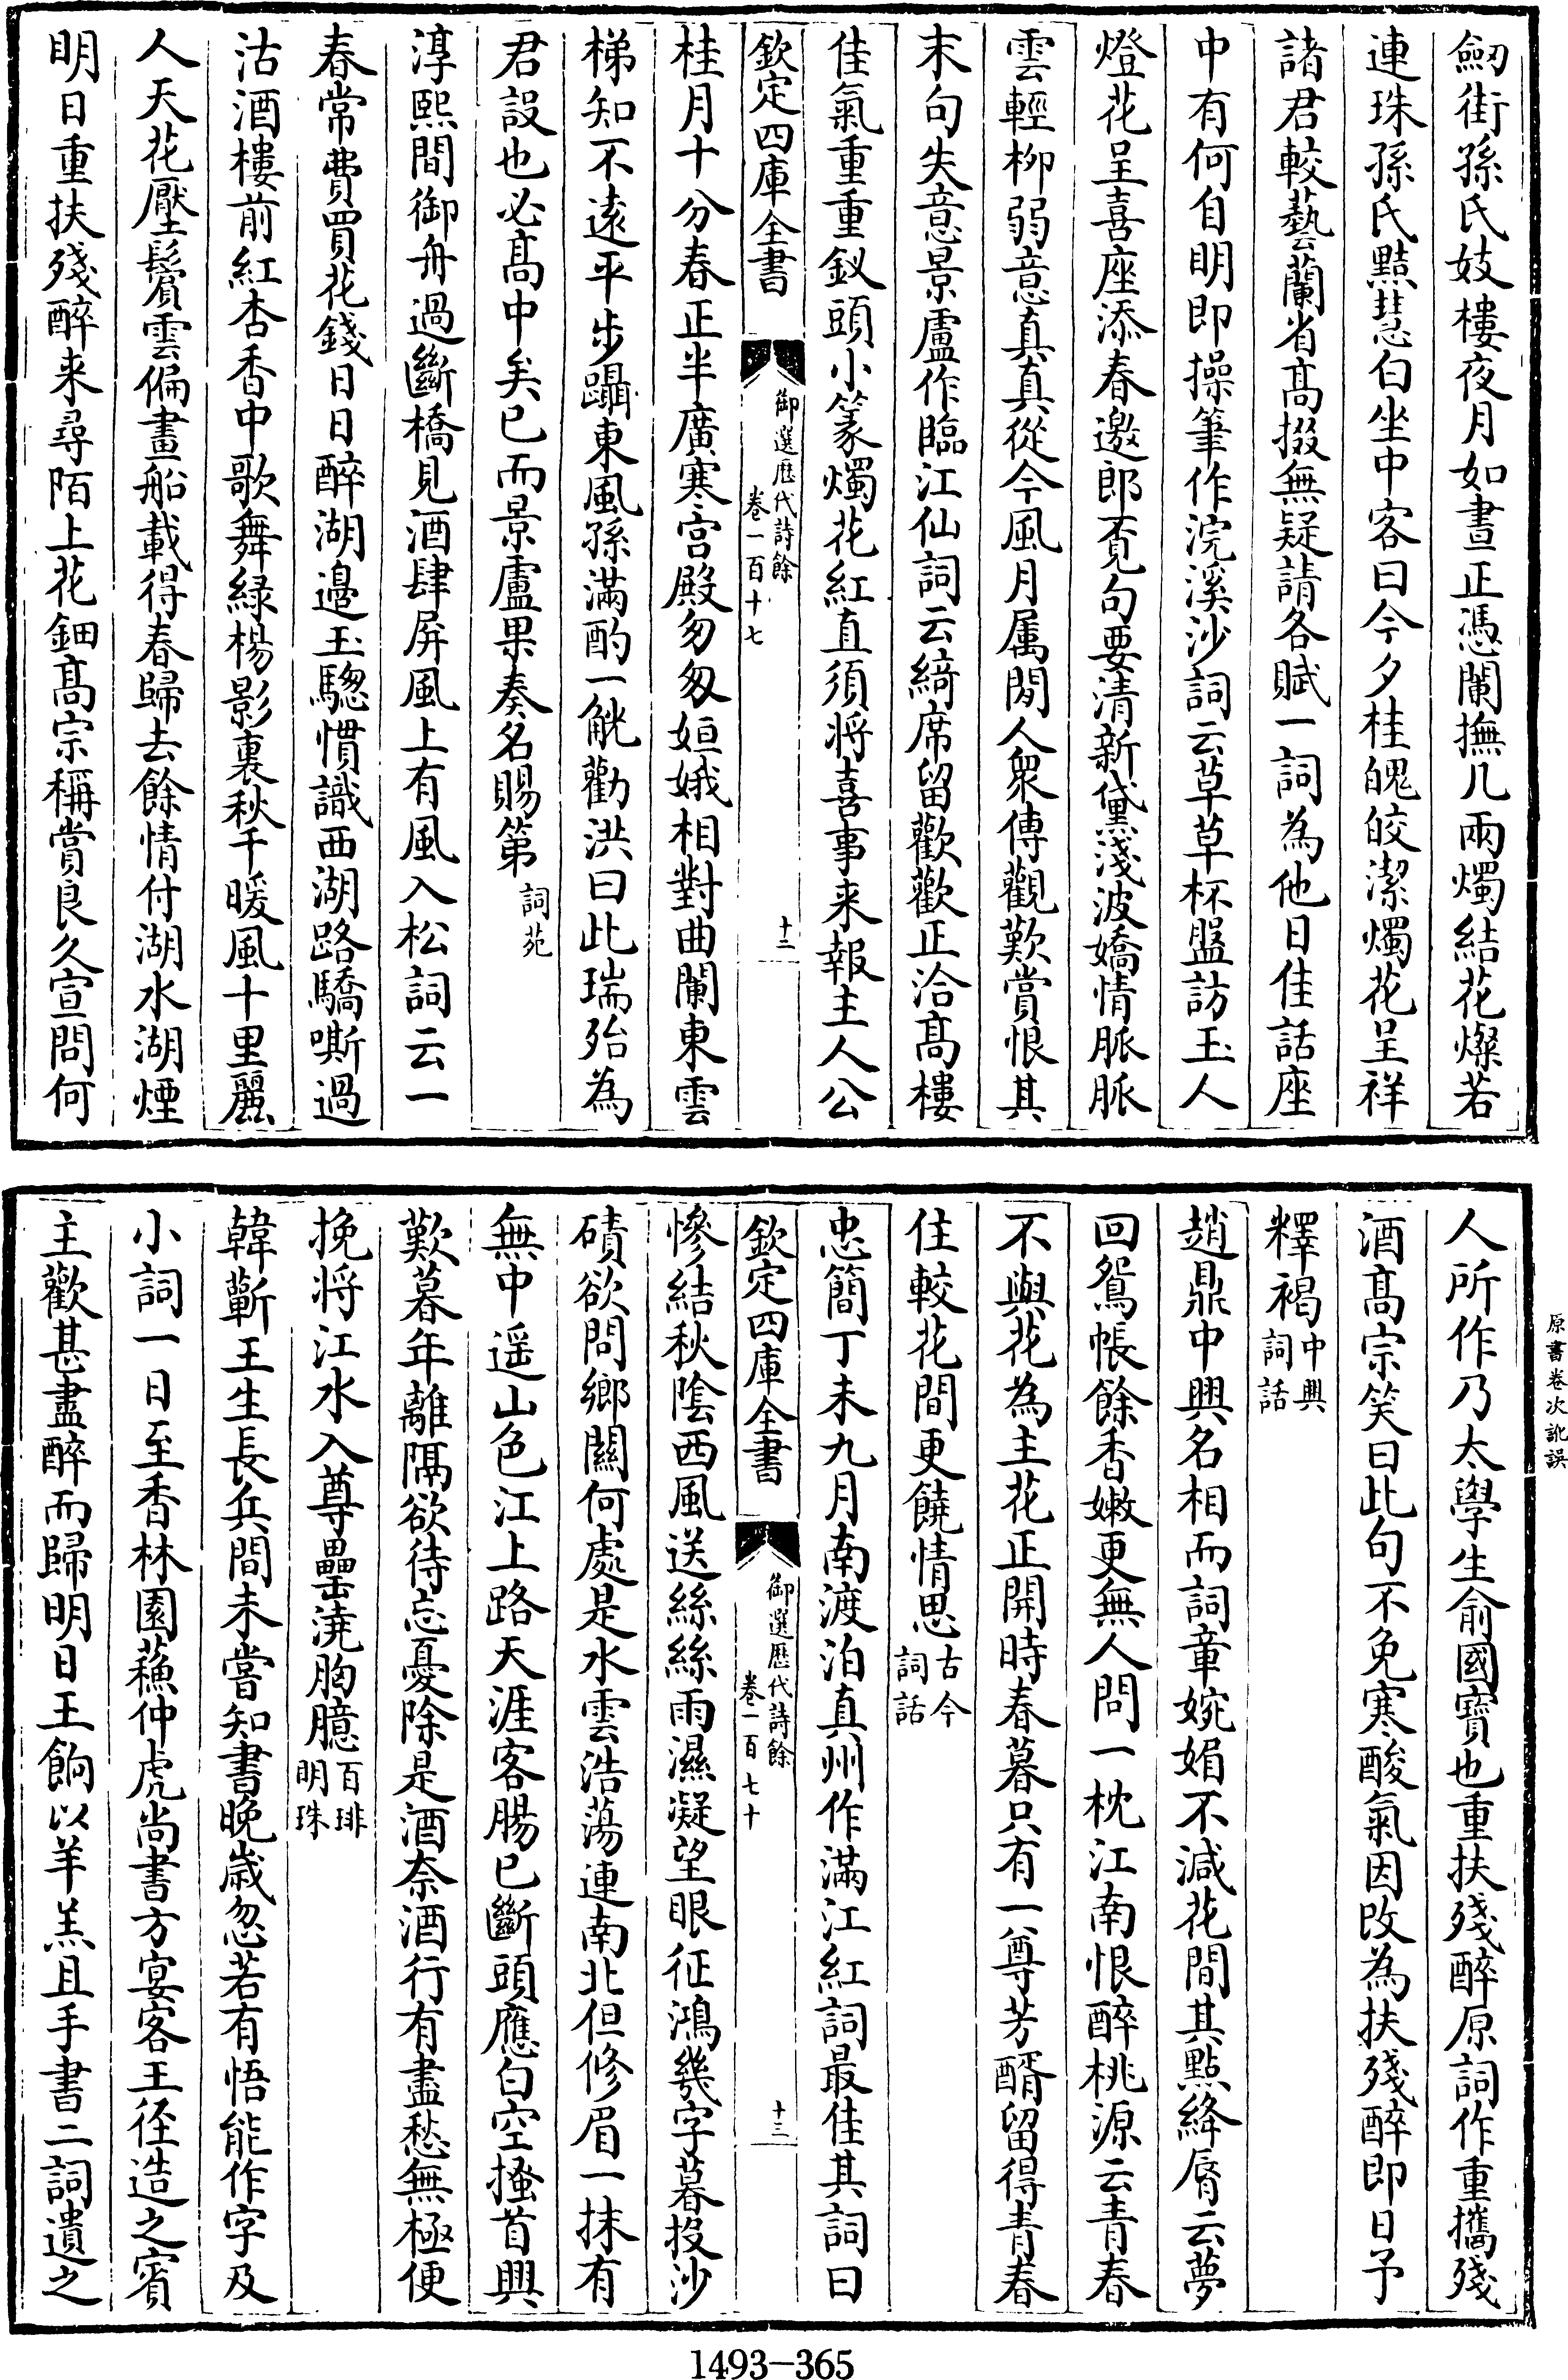 劒街孫氏妓樓夜月如晝正憑闌撫几兩燭結花燦若
連珠孫氏黠慧白坐中客曰今夕桂魄皎潔燭花呈祥
諸君較藝蘭省髙掇無疑請各賦一詞為他日佳話座
中有何自明即操筆作浣溪沙詞云草草杯盤訪玉人
燈花呈喜座添春邀郎覓句要清新黛淺波嬌情脈脈
雲輕柳弱意真真從今風月属閒人衆傳觀歎賞恨其
末句失意景盧作臨江仙詞云綺席留歡歡正洽髙樓
佳氣重重釵頭小篆燭花紅直須将喜事来報主人公
欽定四庫全書
御選歷代詩餘
卷一百十七
十二
桂月十分春正半廣寒宮殿匆匆姮娥相對曲闌東雲
梯知不逺平步躡東風孫滿酌一觥勸洪曰此瑞殆為
君設也必髙中矣已而景盧果奏名賜第詞苑
淳熙間御舟過斷橋見酒肆屏風上有風入松詞云一
春常費買花錢日日醉湖邉玉驄慣識西湖路驕嘶過
沽酒樓前紅杏香中歌舞緑楊影裏秋千暖風十里麗
人天花壓鬢雲偏畫船載得春歸去餘情付湖水湖煙
明日重扶殘醉来尋陌上花鈿髙宗稱賞良久宣問何
人所作乃太學生俞國寶也重扶殘醉原詞作重攜殘
酒髙宗笑曰此句不免寒酸氣因改為扶殘醉即日予
釋褐中興詞話
趙鼎中興名相而詞章婉媚不減花間其點絳脣云夢
回鴛帳餘香嫩更無人問一枕江南恨醉桃源云青春
不與花為主花正開時春暮只有一尊芳醑留得青春
住較花間更饒情思古今詞話
忠簡丁未九月南渡泊真州作滿江紅詞最佳其詞曰
欽定四庫全書
御選歷代詩餘
卷一百七十
十三
慘結秋陰西風送絲絲雨濕凝望眼征鴻幾字暮投沙
磧欲問鄉關何處是水雲浩蕩連南北但修眉一抹有
無中遥山色江上路天涯客腸已斷頭應白空搔首興
歎暮年離隔欲待忘憂除是酒奈酒行有盡愁無極便
挽将江水入尊罍澆胸臆百琲明珠
韓蘄王生長兵間未嘗知書晚歲忽若有悟能作字及
小詞一日至香林園蘓仲虎尚書方宴客王徑造之賓
主歡甚盡醉而歸明日王餉以羊羔且手書二詞遺之
原書卷次訛誤
1493-365